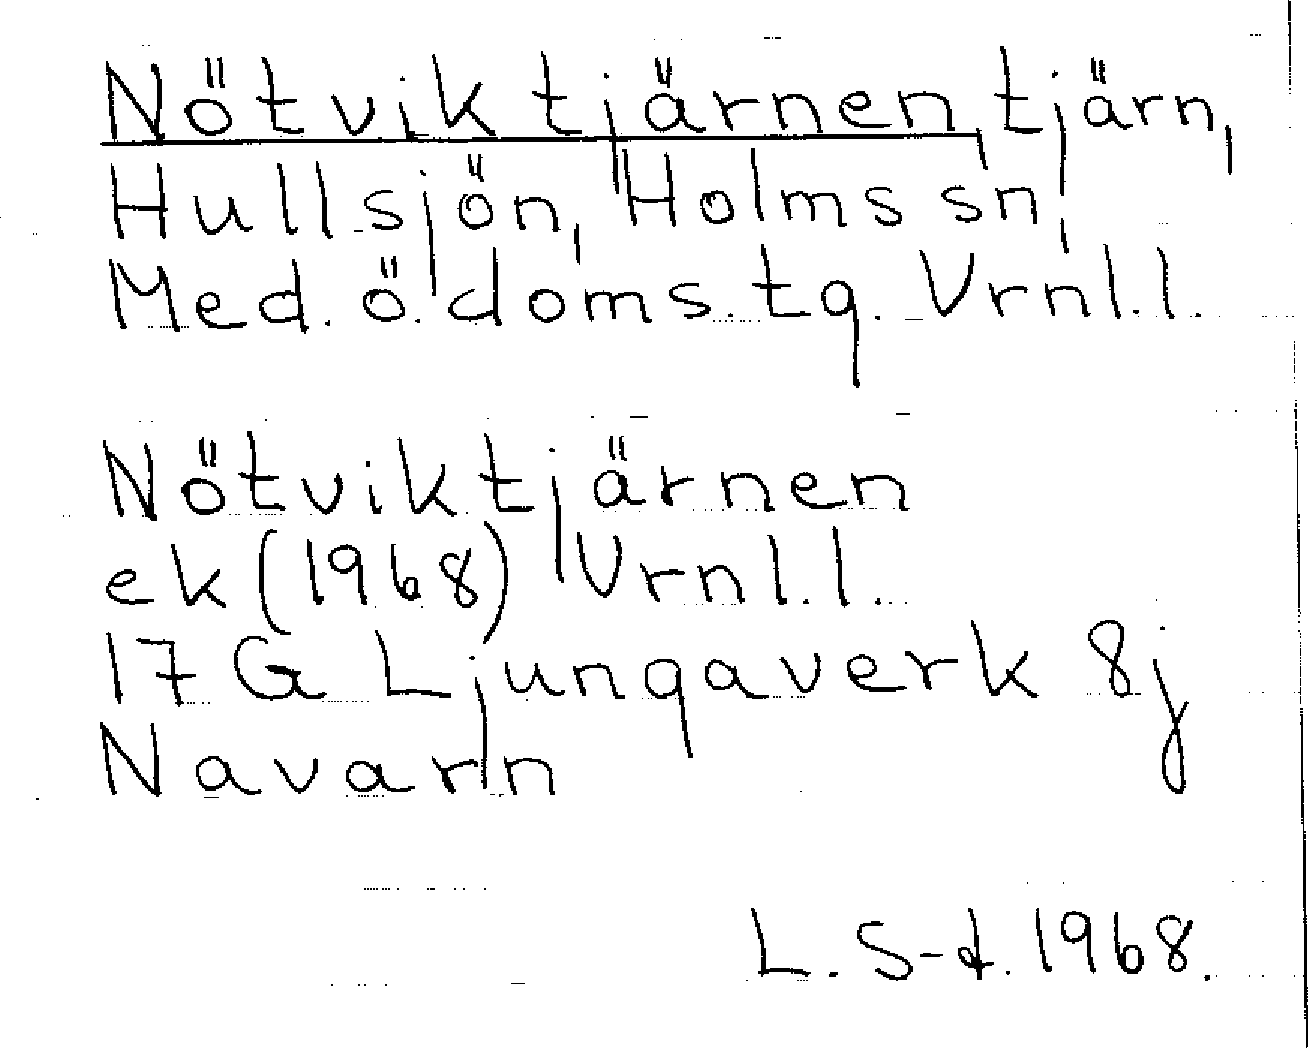 Nötviktjärnen, tjärn,
Hullsjön, Holms sn,
Med. ö. doms. tg. Vrnl.l.
Nötviktjärnen
ek (1968) Vrnl.l.
17 G Ljungaverk 8j
Navarn
L. S-d. 1968.